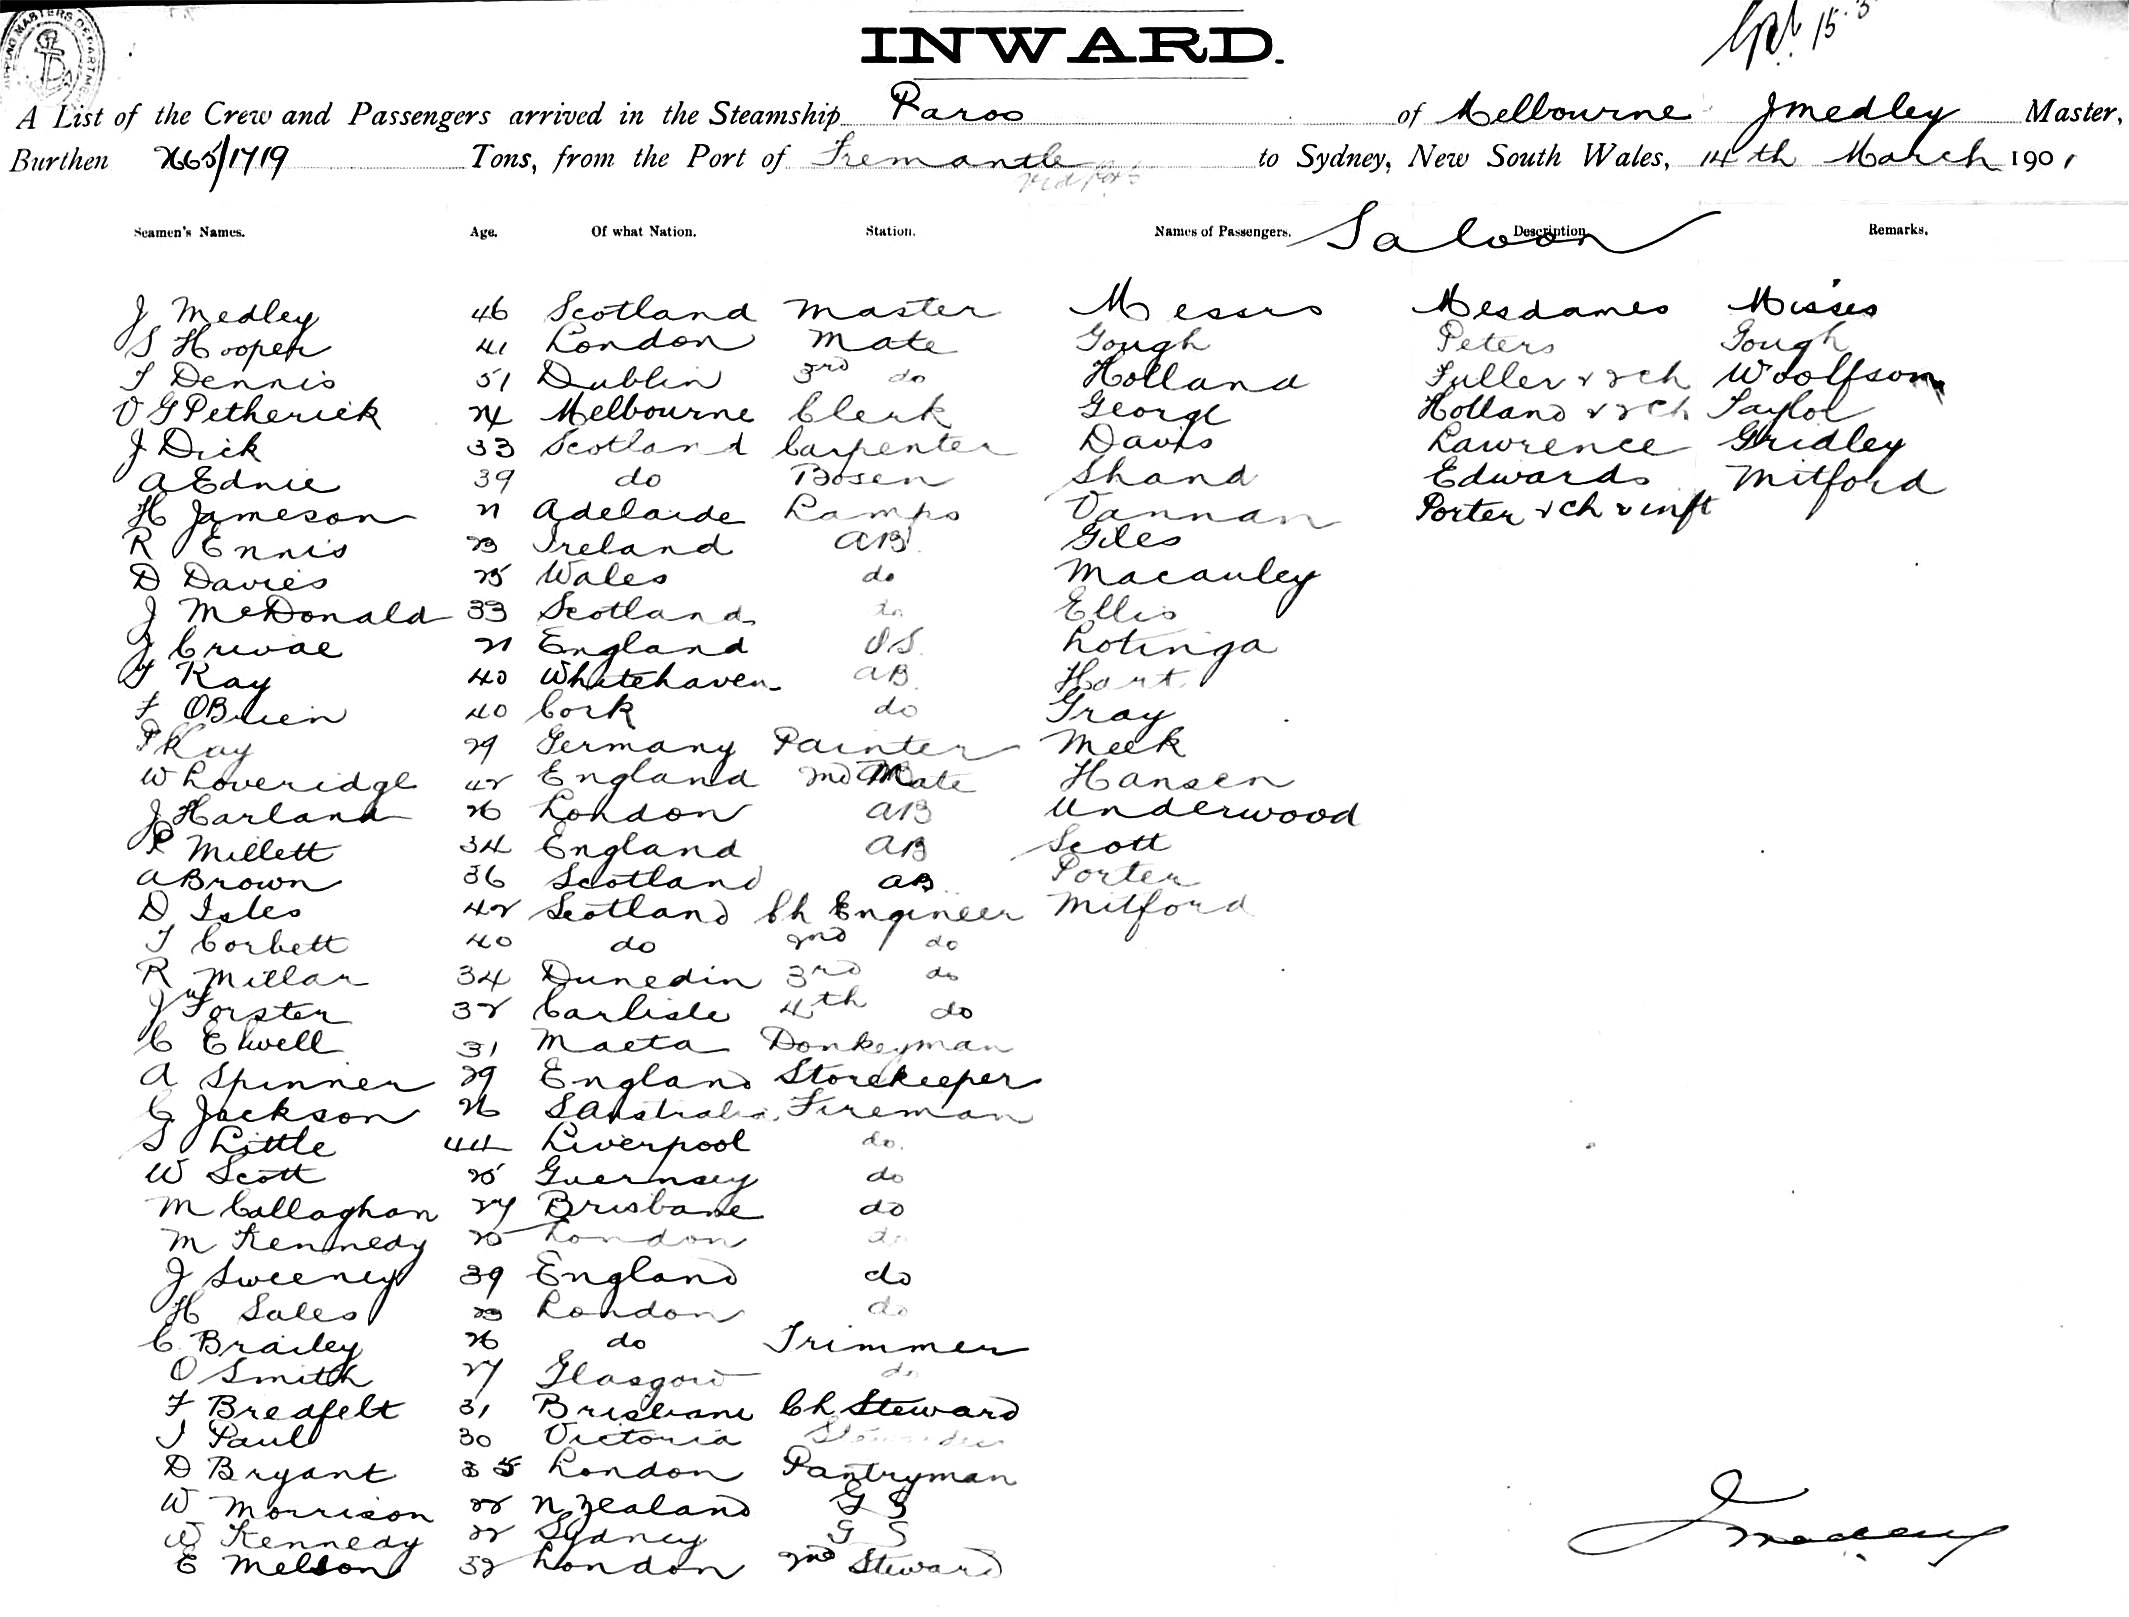 INWARD.
A List of the Crew and Passengers arrived in the Steamship Paroo of Melbourne J Medley Master,
Burthen 2665/1719 Tons, from the Port of Fremantle to Sydney, New South Wales, 14th March 1901
Seamen's Names. Age. Of what Nation. Station. Names of Passengers. Saloon Description Remarks.
J Medley 46 Scotland Master Messrs Mesdames Misses
S Hooper 41 London Mate Gough Peters Gough
T Dennis 51 Dublin 3rd do Holland Fuller & 2 ch Woolfson
V G Petherick 24 Melbourne Clerk George Holland & 2 ch Taylor
J Dick 33 Scotland Carpenter Davis Lawrence Gridley
A Ednie 39 do Bosen Shand Edwards Mitford
H Jameson 21 Adelaide Lamps Vannan Porter & ch & inft
R Ennis 23 Ireland AB Giles
D Davies 25 Wales do Macauley
J McDonald 33 Scotland do Ellis
J 21 England OS Lotinga
Kay 40 Whitehaven AB Hart
F OBrien 40 Cork do Gray
P Kay 29 Germany Painter Meek
W Loveridge 42 England 2nd Mate Hansen
J Harland 26 London AB Underwood
P Millett 34 England AB Scott
A Brown 36 Scotland AB Porter
D Isles 42 Scotland Ch Engineer Mitford
T Corbett 40 do 2nd do
R Millar 34 Dunedin 3rd do
J W Forster 32 Carlisle 4th do
C Elwell 31 Donkeyman
A Spinner 29 England Storekeeper
G Jackson 26 S Australia Fireman
S Little 44 Liverpool do
W Scott 25 Guernsey do
M Callaghan 27 Brisbane do
M Kennedy 25 London do
J Sweeney 39 England do
H Sales 23 London do
C Brailey 26 do Trimmer
O Smith 27 Glasgow do
F Bredfelt 31 Brisbane Ch Steward
J Paul 30 Victoria
D Bryant 35 London Pantryman
W Morrison 22 N Zealand G S
W Kennedy 22 Sydney G S
E Melson 32 London 2nd Steward
J Medley